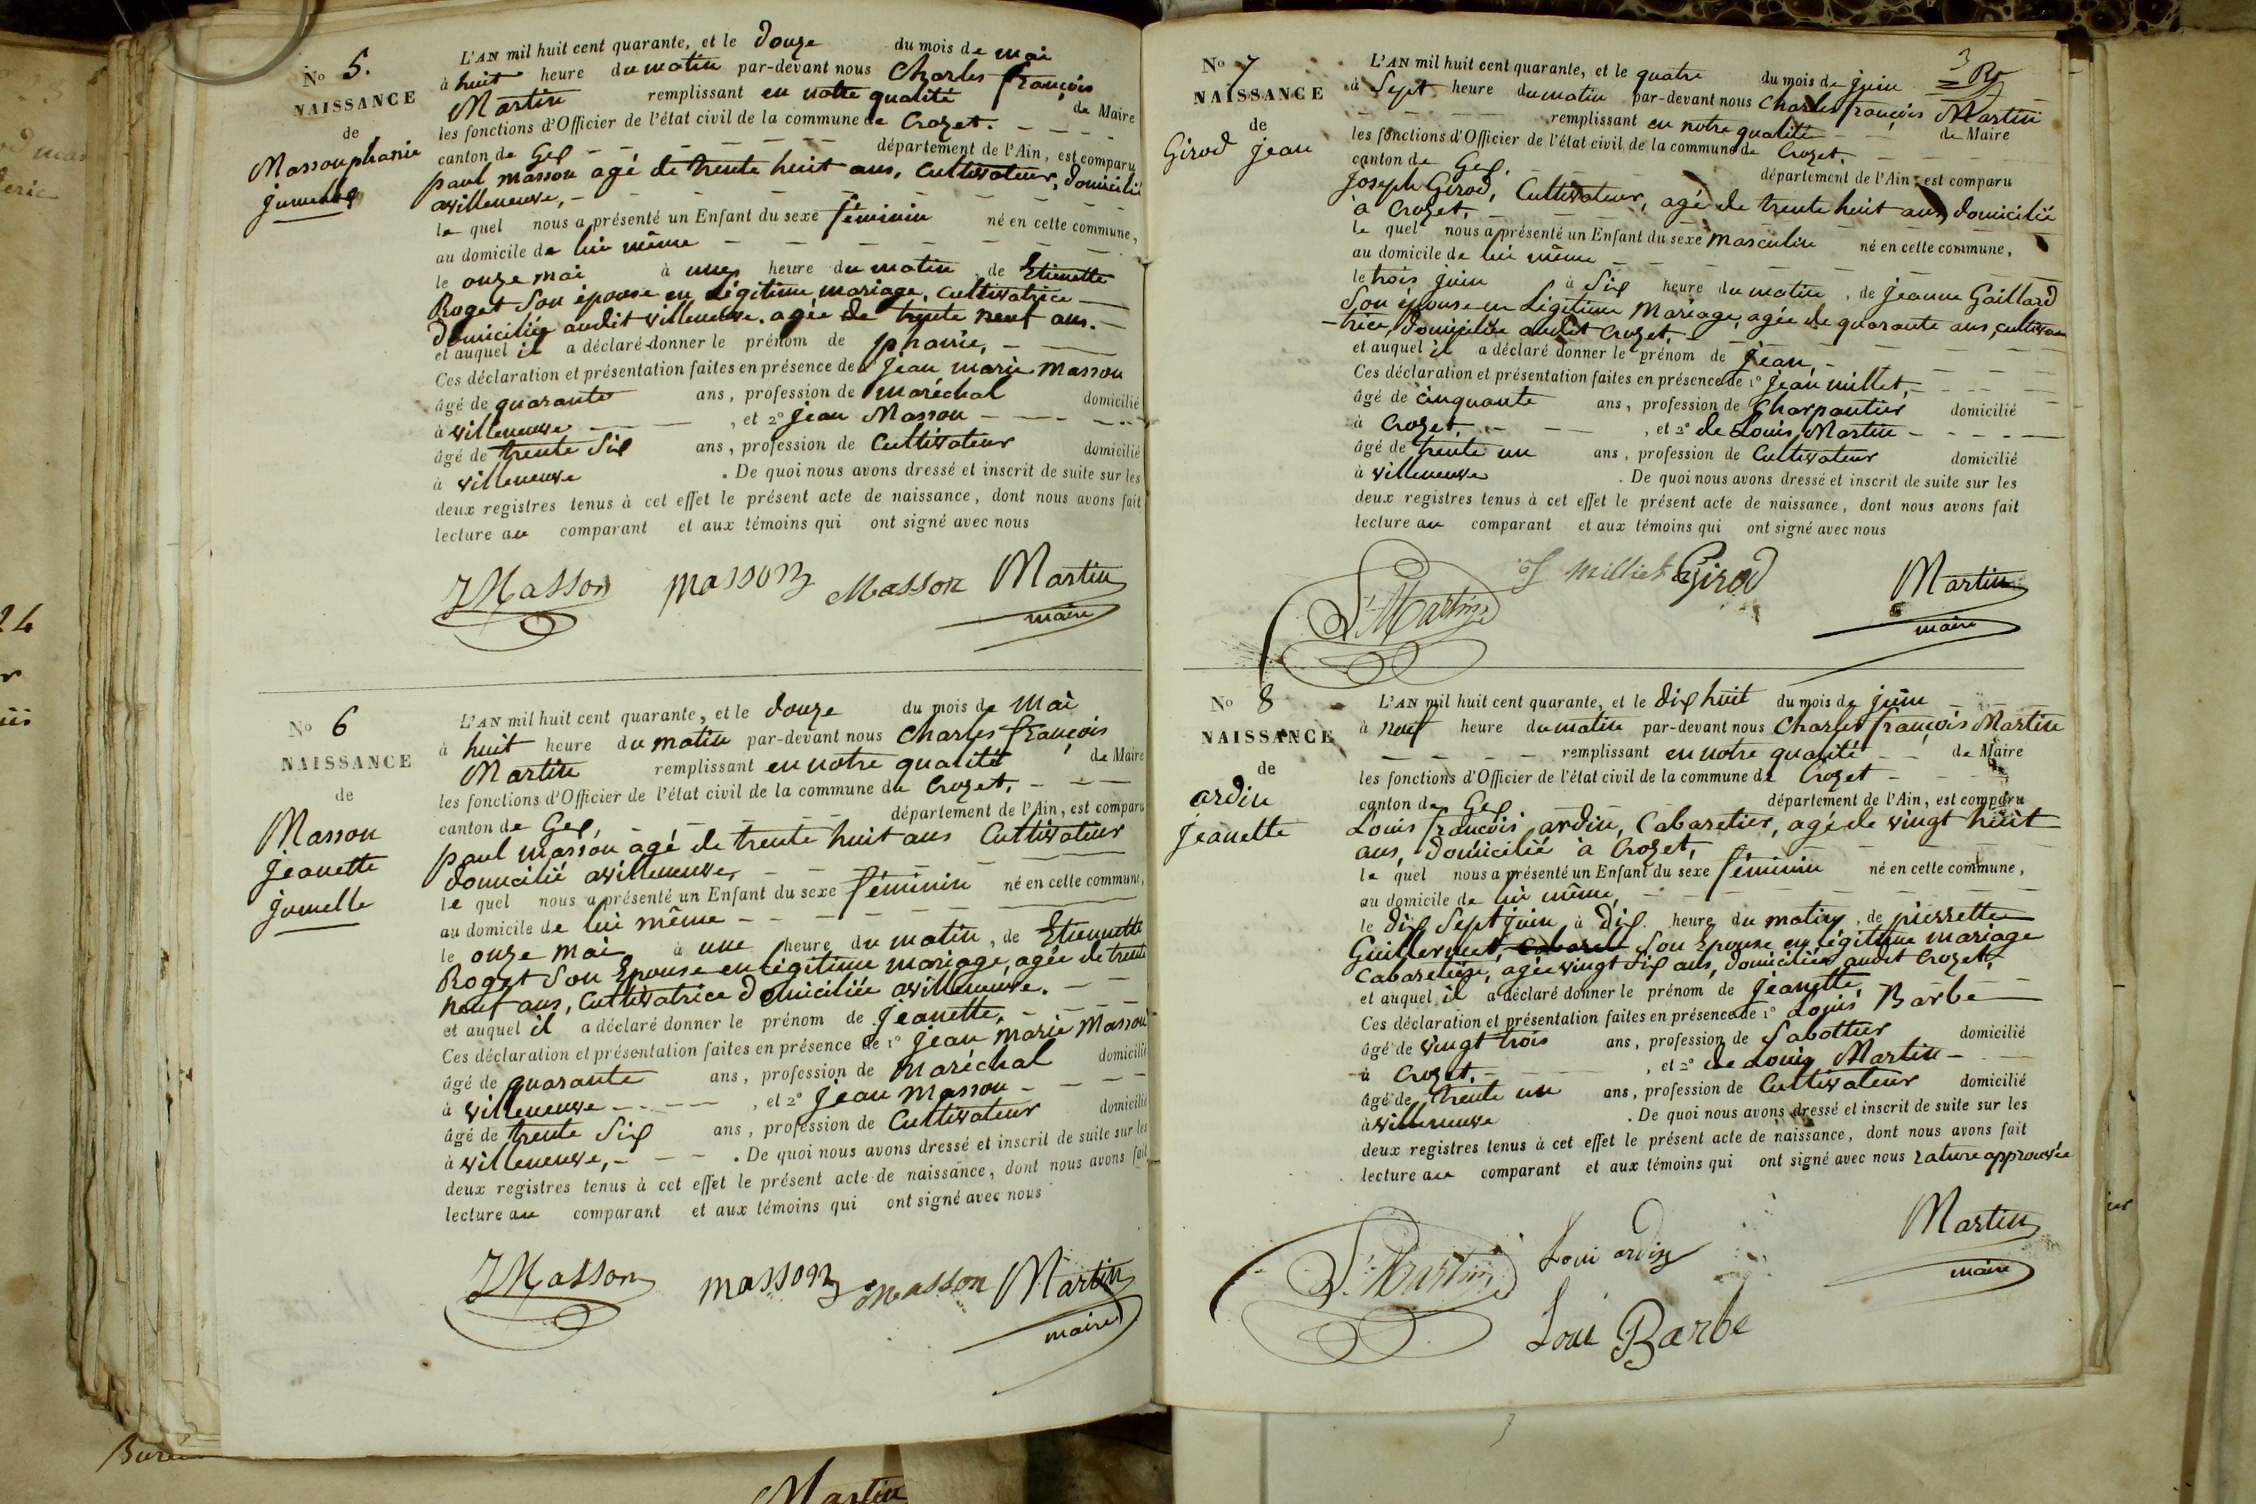 N° 5.
NAISSANCE
de
Masson phanie
jumelle
L'AN mil huit cent quarante, et le douze du mois de mai
à huit heure du matin par-devant nous Charles françois
Martin remplissant en notre qualité de Maire
les fonctions d'Officier de l'état civil de la commune de Crozet.
canton de Gex département de l'Ain, est comparu
paul masson agé de trente huit ans, Cultivateur, domicilié
avilleneuve,
le quel nous a présenté un Enfant du sexe féminin né en cette commune,
au domicile de lui même
le onze mai à une heure du matin, de Etiennette
Roget Son épouse en légitime mariage, Cultivatrice
domiciliée audit villeneuve. agée de trente neuf ans.
et auquel il a déclaré donner le prénom de phanie,
Ces déclaration et présentation faites en présence de jean marie Masson
âgé de quarante ans, profession de maréchal domicilié
à villeneuve, et 2° jean Masson
âgé de trente six ans, profession de Cultivateur domicilié
à villeneuve. De quoi nous avons dressé et inscrit de suite sur les
deux registres tenus à cet effet le présent acte de naissance, dont nous avons fait
lecture au comparant et aux témoins qui ont signé avec nous
JMasson masson Masson Martin
maire
N° 6
NAISSANCE
de
Masson
jeanette
jumelle
L'AN mil huit cent quarante, et le douze du mois de mai
à huit heure du matin par-devant nous Charles françois
Martin remplissant en notre qualité de Maire
les fonctions d'Officier de l'état civil de la commune de Crozet,
canton de Gex, département de l'Ain, est comparu
paul masson agé de trente huit ans Cultivateur
domicilié avilleneuve,
le quel nous a présenté un Enfant du sexe féminin né en cette commune,
au domicile de lui même
le onze mai à une heure du matin, de Etiennette
Roget Son Epouse en légitime mariage, agée de trente
neuf ans, Cultivatrice domiciliée avilleneuve.
et auquel il a déclaré donner le prénom de jeanette,
Ces déclaration et présentation faites en présence de 1° jean marie Masson
âgé de quarante ans, profession de Maréchal domicilié
à villeneuve, et 2° jean masson
âgé de trente six ans, profession de Cultivateur domicilié
à villeneuve,. De quoi nous avons dressé et inscrit de suite sur les
deux registres tenus à cet effet le présent acte de naissance, dont nous avons fait
lecture au comparant et aux témoins qui ont signé avec nous
JMasson masson masson Martin
maire
3
N° 7
NAISSANCE
de
Girod jean
L'AN mil huit cent quarante, et le quatre du mois de juin
à Sept heure du matin par-devant nous Charles françois Martin
remplissant en notre qualité de Maire
les fonctions d'Officier de l'état civil de la commune de Crozet.
canton de Gex. département de l'Ain, est comparu
joseph Girod, Cultivateur, agé de trente huit ans, domicilié
à Crozet,
le quel nous a présenté un Enfant du sexe masculin né en cette commune,
au domicile de lui même
le trois juin à six heure du matin, de jeanne Gaillard
Son épouse en Légitime Mariage, agée de quarante ans, cultiva
-trice, domiciliée audit Crozet,
et auquel il a déclaré donner le prénom de jean,
Ces déclaration et présentation faites en présence de 1° jean millet,
âgé de cinquante ans, profession de Charpantier domicilié
à Crozet, et 2° de Louis Martin
âgé de trente un ans, profession de Cultivateur domicilié
à villeneuve. De quoi nous avons dressé et inscrit de suite sur les
deux registres tenus à cet effet le présent acte de naissance, dont nous avons fait
lecture au comparant et aux témoins qui ont signé avec nous
Martin Milliet Girod Martin
maire
N° 8
NAISSANCE
de
ardin
jeanette
L'AN mil huit cent quarante, et le dix huit du mois de juin
à neuf heure du matin par-devant nous Charles françois Martin
remplissant en notre qualité de Maire
les fonctions d'Officier de l'état civil de la commune de Crozet
canton de Gex. département de l'Ain, est comparu
Louis françois ardin, Cabaretier, agé de vingt huit
ans, domicilié à Crozet,
le quel nous a présenté un Enfant du sexe féminin né en cette commune,
au domicile de lui même,
le dix Sept juin à dix heure du matin, de pierrette
Guillermet, Son Epouse en légitime mariage
Cabaretière, agée vingt six ans, domiciliée audit Crozet,
et auquel il a déclaré donner le prénom de jeanette,
Ces déclaration et présentation faites en présence de 1° Louis Barbe
âgé de vingt trois ans, profession de Sabottier domicilié
à Crozet, et 2° de Louis Martin
âgé de trente un ans, profession de Cultivateur domicilié
à villeneuve. De quoi nous avons dressé et inscrit de suite sur les
deux registres tenus à cet effet le présent acte de naissance, dont nous avons fait
lecture au comparant et aux témoins qui ont signé avec nous rature approuvée
Martin Loui ardin Martin
maire
Loui Barbe
Martin